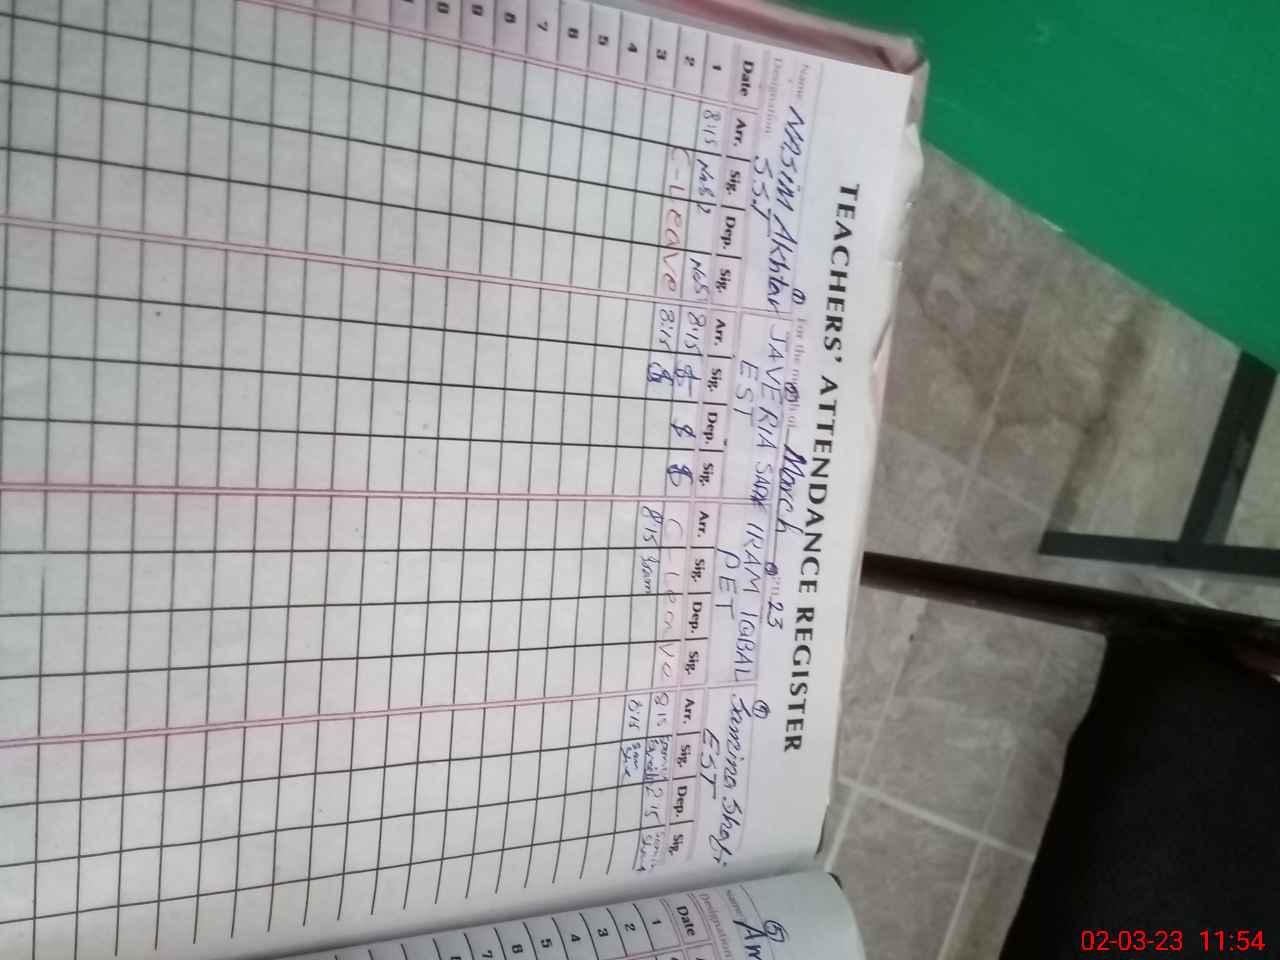 TEACHERS' ATTENDANCE REGISTER
For the month of March 2023
Name NASIM Akhtar JAVERIA IRAM IQBAL Samina Shafi
Designation S.S.T EST PET EST
Date Arr. Sig. Dep. Sig. Arr. Sig. Dep. Sig. Arr. Sig. Dep. Sig. Arr. Sig. Dep. Sig.
1 8:15 8:15 C-Leave 8:15 2 15
2 C-Leave 8:15 8:15 Iram 8:15
3
4
5
6
7
8
9
(5)
Name Am
Designation
Date
1
2
3
4
5
6
7
02-03-23 11:54